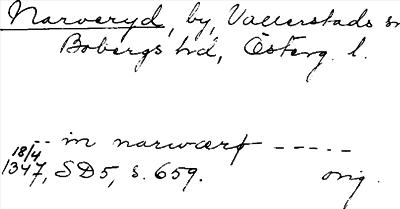 Narveryd, by, Vallerstads sn
Bobergs hd, Österg. l.
-- in narwærþ -----
18/4
1347, SD5, s. 659. orig.